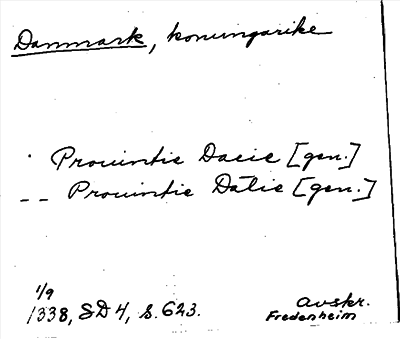 Danmark, konungarike
· Prouintie Dacie [gen.]
-- Prouintie Datie [gen.]
1/9
1338, SD 4, s. 623.
avskr.
Fredenheim